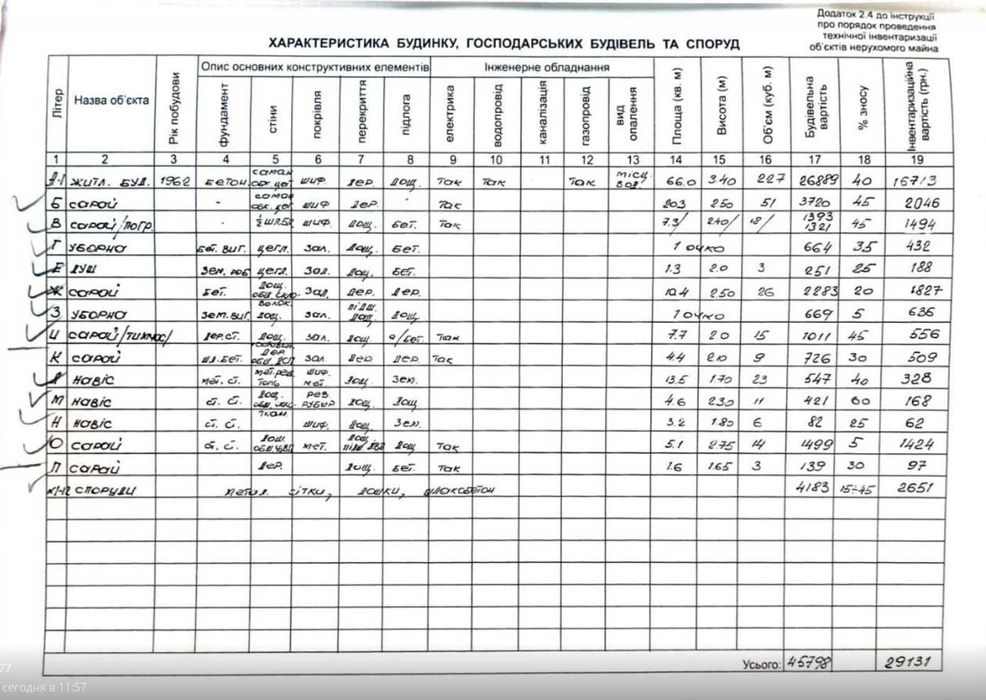 Додаток 2.4 до інструкції
про порядок проведення
технічної інвентаризації
об'єктів нерухомого майна
ХАРАКТЕРИСТИКА БУДИНКУ, ГОСПОДАРСЬКИХ БУДІВЕЛЬ ТА СПОРУД
Літер Назва об'єкта Рік побудови Опис основних конструктивних елементів Інженерне обладнання Площа (кв. м) Висота (м) Об'єм (куб. м) Будівельна вартість % зносу Інвентаризаційна вартість (грн.)
фундамент стіни покрівля перекриття підлога електрика водопровід каналізація газопровід вид опалення
1 2 3 4 5 6 7 8 9 10 11 12 13 14 15 16 17 18 19
А-1 житл. буд. 1962 бетон саман обк. цег шиф. дер. дощ. так так так місц. 66.0 3.40 227 26889 40 16713
Б сарай - самон обк. цег шиф дер. так 20.3 2.50 51 3720 45 2046
В сарай/погр. - шиф. дощ. бет. так 7.3/ 2.40/ 18/ 1393 1321 45 1494
Г уборна бет. виг. цегл. зал. дощ. бет. 1 очко 664 35 432
Е душ цегл. зал. дощ. бет. 1.3 2.0 3 251 25 188
Ж сарай бет. дощ. зал. дер. дер. 10.4 2.50 26 2283 20 1827
З уборна зем. виг. дощ. зал. підш. дощ. дощ. 1 очко 669 5 636
И сарай/тимчас/ дер. ст. дощ. зал. дощ о/бет. так 7.7 2.0 15 1011 45 556
К сарай шл. бет. дер. зал. дер дер. так 4.4 2.0 9 726 30 509
Л навіс мет. ст. шиф. мет. дощ. зем. 13.5 1.70 23 547 40 328
М навіс ст. ст. дощ. дощ. дощ 4.6 2.30 11 421 60 168
Н навіс ст. ст. ткан. шиф. дощ. зем. 3.2 1.80 6 82 25 62
О сарай ст. ст. дощ. мет. дощ. дощ так 5.1 2.75 14 1499 5 1424
П сарай дер. дощ. бет. так 1.6 1.65 3 139 30 97
споруди метал. сітки, дошки, шлакобетон 4183 15÷45 2651
Усього: 45798 29131
77
сегодня в 11:57